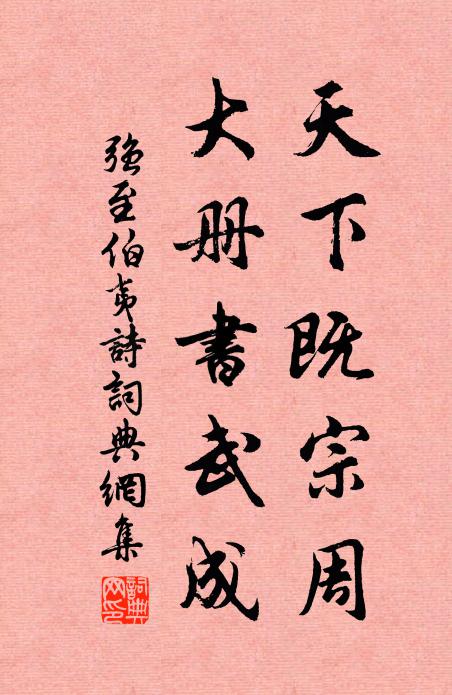 天下既宗周
大册書武成
強至伯夷詩詞典網集
詞典網印